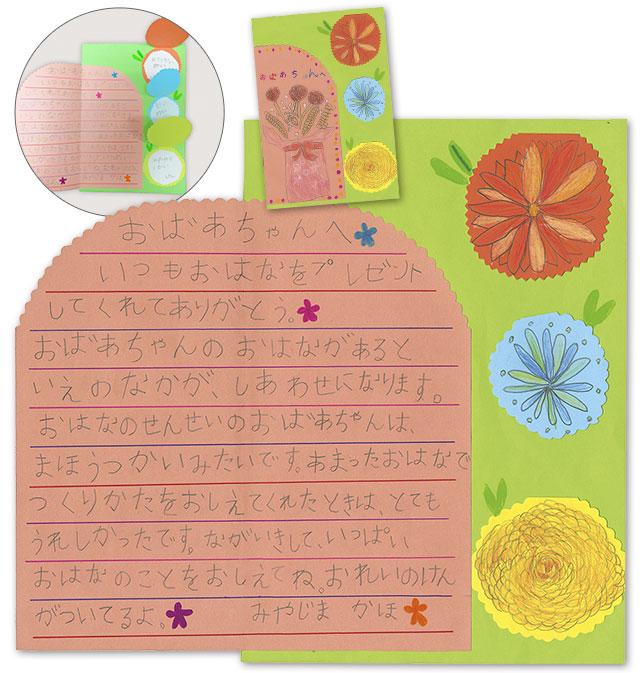 おばあちゃんへ
おばあちゃんへ
いつもおはなをプレゼント
してくれてありがとう。
おばあちゃんのおはながあると
いえのなかが、しあわせになります。
おはなのせんせいのおばあちゃんは、
まほうつかいみたいです。あまったおはなで
つくりかたをおしえてくれたときは、とても
うれしかったです。ながいきして、いっぱい
おはなのことをおしえてね。おれいのけん
がついてるよ。 みやじま かほ